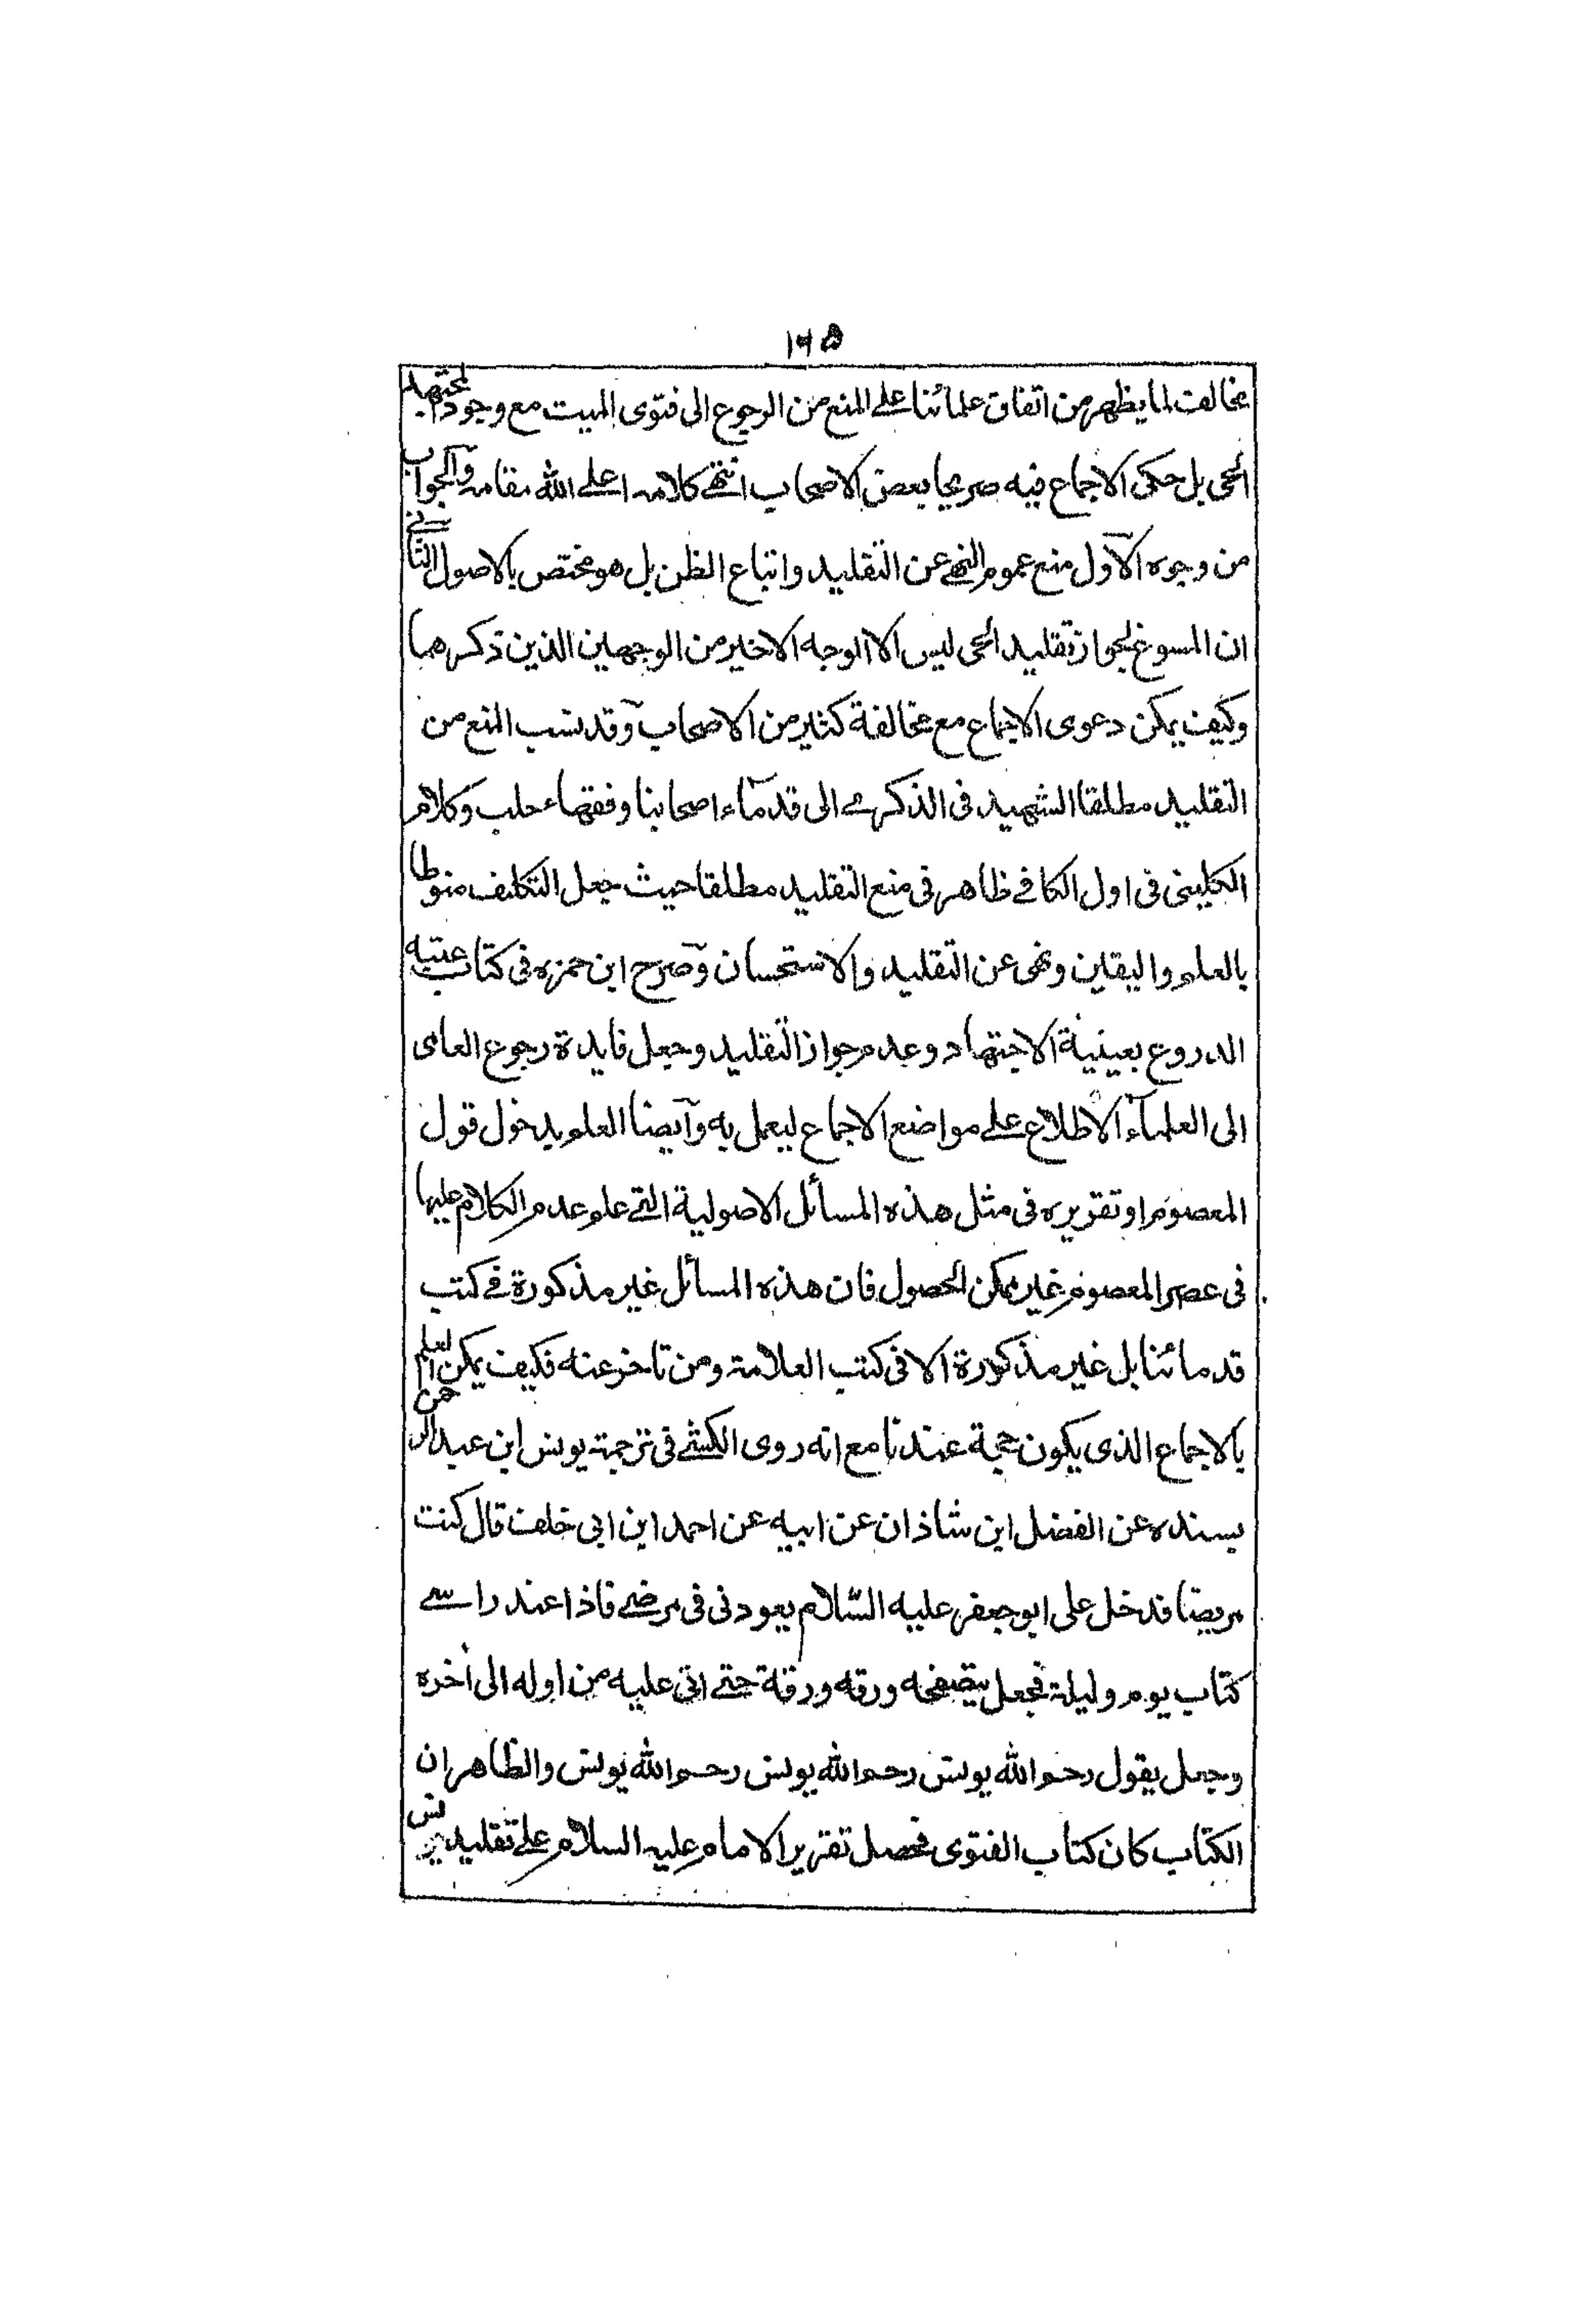 ١٦٥
مخالف لما يظهر من اتفاق علمائنا على المنع من الرجوع الى فتوى الميت مع وجود المجتهد
الحى بل حكى الاجماع فيه صريحا بعض الاصحاب انتهى كلامه اعلى الله مقامه والجواب
من وجوه الاول منع عموم النهى عن التقليد واتباع الظن بل هو مختص بالاصول الثانى
ان المسوغ لجواز تقليد الحى ليس الا الوجه الاخير من الوجهين الذين ذكرهما
وكيف يمكن دعوى الاجماع مع مخالفة كثير من الاصحاب وقد نسب المنع من
التقليد مطلقا الشهيد فى الذكرى الى قدماء اصحابنا وفقهاء حلب وكلام
الكلينى فى اول الكافى ظاهر فى منع التقليد مطلقا حيث جعل التكليف منوطا
بالعلم واليقين ونهى عن التقليد والاستحسان وصرح ابن حمزه فى كتاب
الدروع بعينية الاجتهاد وعدم جواز التقليد وجعل فايدة رجوع العامى
الى العلماء الاطلاع على مواضع الاجماع ليعمل به وايضا العلم بدخول قول
المعصوم او تقريره فى مثل هذه المسائل الاصولية التى علم عدم الكلام عليها
فى عصر المعصوم غير ممكن الحصول فان هذه المسائل غير مذكورة فى كتب
قدمائنا بل غير مذكورة الا فى كتب العلامة ومن تاخر عنه فكيف يمكن العلم
بالاجماع الذى يكون حجة عندنا مع انه روى الكشى فى ترجمة يونس ابن عبد الرحمن
بسنده عن الفضل ابن شاذان عن ابيه عن احمد ابن ابى خلف قال كنت
مريضا فدخل على ابو جعفر عليه السّلام يعودنى فى مرضى فاذا عند راسى
كتاب يوم وليلة فجعل يتصفحه ورقه ورقة حتى اتى عليه من اوله الى آخره
وجعل يقول رحم الله يونس رحم الله يونس رحم الله يونس والظاهر ان
الكتاب كان كتاب الفتوى فحصل تقرير الامام عليه السلام على تقليد يونس